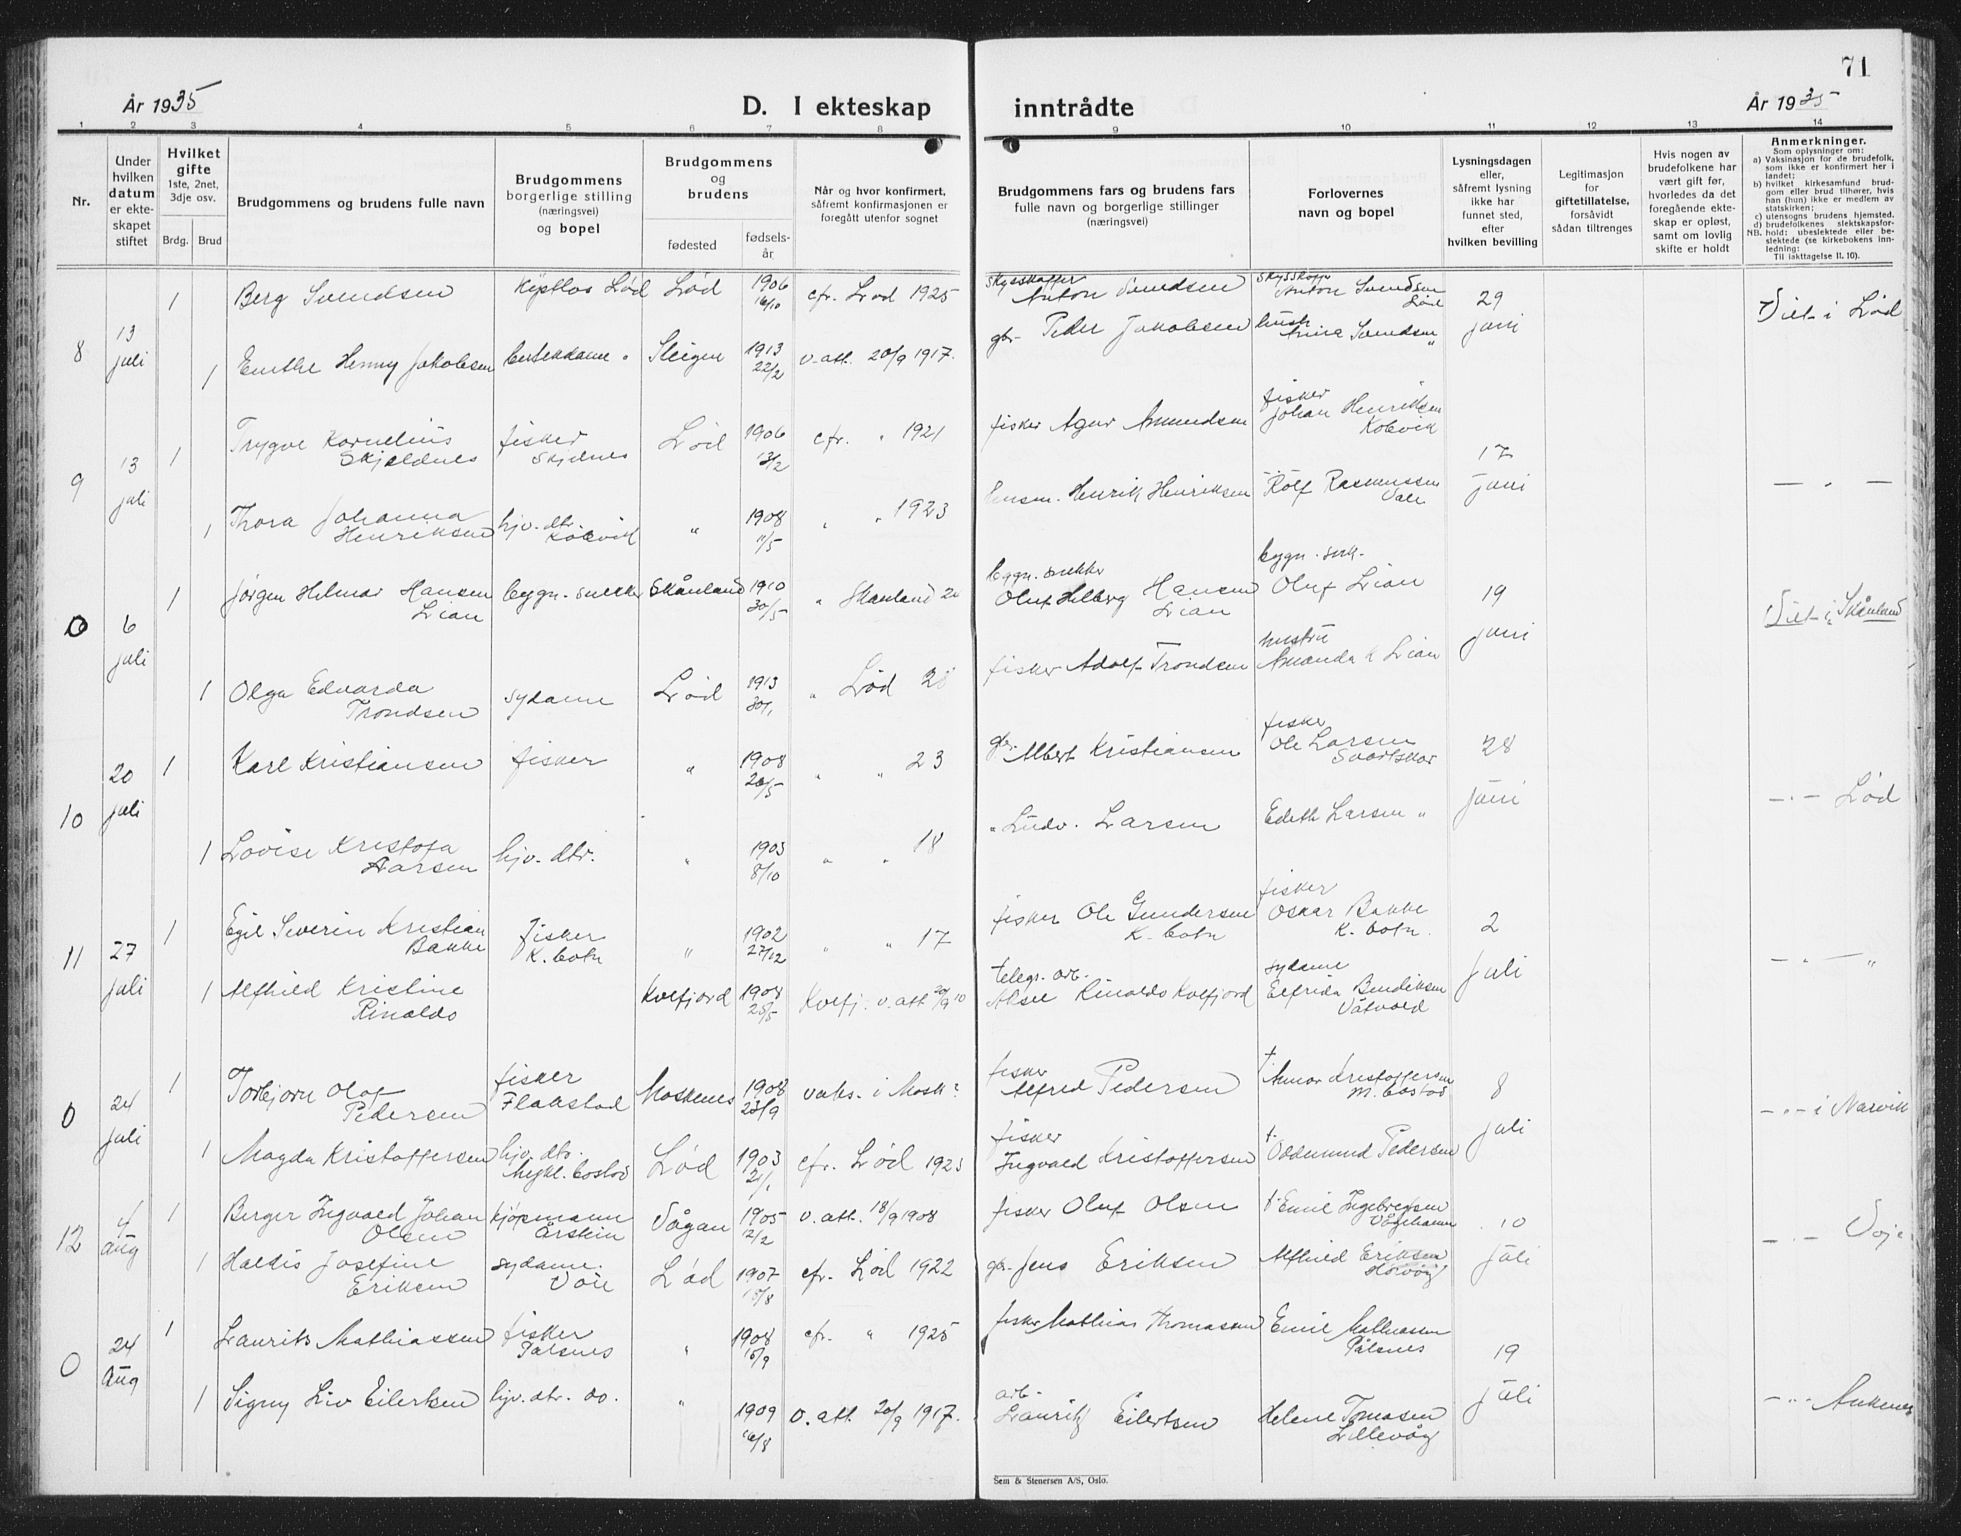 År 1935
D. I ekteskap inntrådte
71
År 1935
1 2 3 4 5 6 7 8 9 10 11 12 13 14
Nr.
Under hvilken datum er ekteskapet stiftet
Hvilket gifte
1ste, 2net, 3dje osv.
Brdg. Brud
Brudgommens og brudens fulle navn
Brudgommens borgerlige stilling (næringsvei) og bopel
Brudgommens og brudens
fødested
fødselsår
Når og hvor konfirmert, såfremt konfirmasjonen er foregått utenfor sognet
Brudgommens fars og brudens fars fulle navn og borgerlige stillinger (næringsvei)
Forlovernes navn og bopel
Lysningsdagen eller, såfremt lysning ikke har funnet sted, efter hvilken bevilling
Legitimasjon for giftetillatelse, forsåvidt sådan tiltrenges
Hvis nogen av brudefolkene har vært gift før, hvorledes da det foregående ekteskap er opløst, samt om lovlig skifte er holdt
Anmerkninger.
Som oplysninger om:
a) Vaksinasjon for de brudefolk, som ikke er konfirmert her i landet;
b) hvilket kirkesamfund brudgom eller brud tilhører, hvis han (hun) ikke er medlem av statskirken;
c) utensogns brudens hjemsted.
d) brudefolkenes slektskapsforhold: ubeslektede eller beslektede (se kirkebokens innledning:
NB.
Til iakttagelse II. 10).
8 13 juli
1 Berg Svendsen Lød 1906 16/10 cfr. Lød 1925 Anton Svendsen Anton Svendsen Lød 29 juni Viet i Lød
1 Henny Jakobsen Steigen 1913 22/2 v. att. 20/9 1917. gbr. Peder Jakobsen Anna Svendsen "
9 13 juli
1 Trygve Kornelius Skjeldnes fisker Skjelnes Lød 1906 13/2 cfr. " 1921 fisker Agur Amundsen fisker Johan Henriksen Kobvik 17 juni — " —
1 Thora Johanna Henriksen hjv. dtr. Kobvik " 1908 11/5 " " 1923 Henrik Henriksen Rolf Rasmussen
0 6 juli
1 Jørgen Hilmar Hansen Lian bygn. snekker Skånland 1910 30/5 " Skånland bygn. snekker Oluf Hilberg Hansen Lian bygn. snk. Oluf Lian 19 juni Viet i Skånland
1 Olga Edvarda Trondsen sydame Lød 1913 30/1 " Lød 28 fisker Adolf Trondsen hustru Amanda Lian
10 20 juli
1 Karl Kristiansen fisker " 1908 26/5 " " 23 gbr. Albert Kristiansen fisker Ole Larsen Svartskar 28 juni — " — Lød
1 Lovise Kristofa Larsen hjv. dtr. " 8/10 " " 18 " Ludv. Larsen Edith Larsen "
11 27 juli
1 Egil Severin Kristian Bakke fisker K. botn " 1902 27/12 " " 17 fisker Ole Gundersen K. botn fisker Oskar Bakke K. botn. 2 juli — " — "
1 Alfhild Kristine Rinaldo Kvefjord 1908 25/5 Kvefj. v. att. telegr. arb. Aksel Rinaldo Kvefjord sydame Elfrida Bendiksen Våtvold
0 24 juli
1 Torbjørn Olaf Pedersen fisker Flakstad Moskenes 1908 23/9 vaks. i Mosk. fisker Alfred Pedersen Kristoffersen M. bostad 8 juli — " — i Narvik
1 Magda Kristoffersen hjv. dtr. Mykl. bostad Lød 1903 cfr. Lød 1923 fisker Ingvald Kristoffersen Oddmund Pedersen
12 4 Aug
1 Berger Ingvald Johan Olsen kjøpmann Årstein Vågan 1905 12/2 v. att. 18/9 1908 fisker Oluf Olsen Emil Ingebrigtsen 10 juli — " —
1 Haldis Josefine Eriksen sydame Lød 1907 cfr. Lød 1922 gbr. Jens Eriksen Alfhild Eriksen
0 24 Aug
1 Laurits Mathiassen fisker Pålsnes " 1908 15/9 cfr. " 1925 fisker Mathias Thomassen Emil Mathiassen Pålsnes 19 juli — " — Ankenes
1 Signy Liv Eilertsen hjv. dtr. do. " 1909 v. att. 20/9 1917. arb. Lauritz Eilertsen Helene Tomasen Lillevåg
Sem & Stenersen A/S, Oslo.